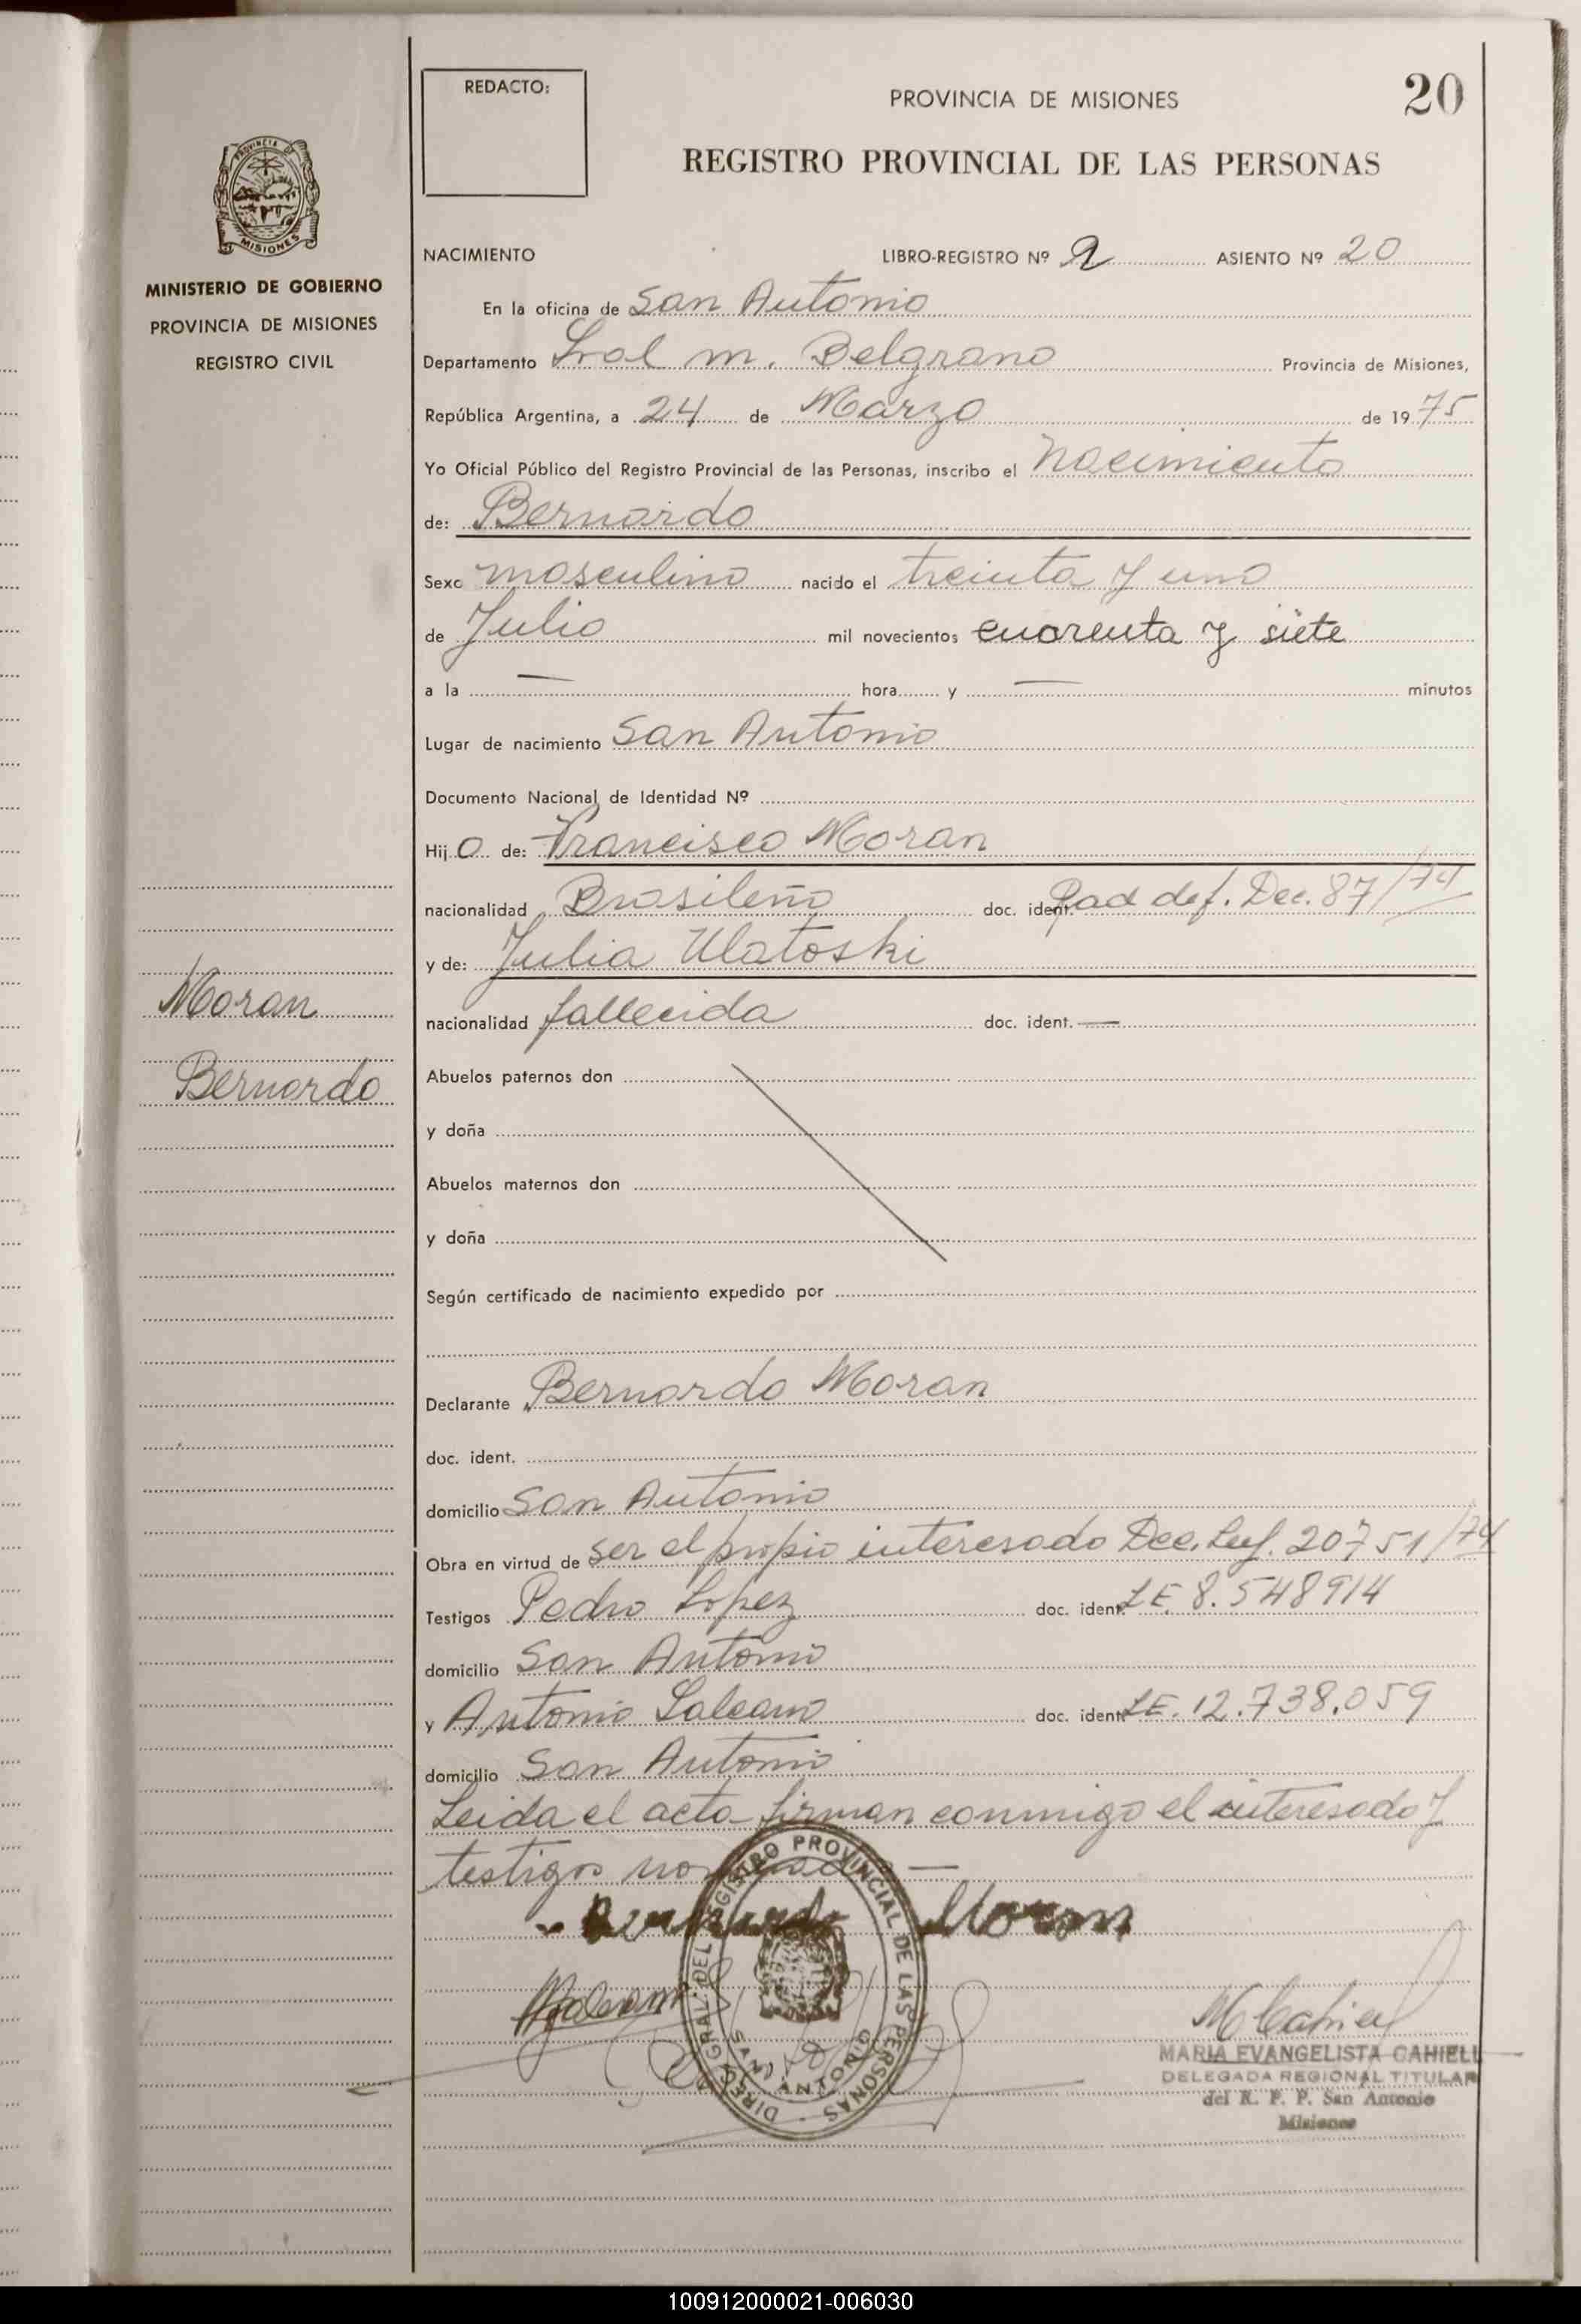 REDACTO:
PROVINCIA DE MISIONES
20
REGISTRO PROVINCIAL DE LAS PERSONAS
PROVINCIA DE
MISIONES
MINISTERIO DE GOBIERNO
PROVINCIA DE MISIONES
REGISTRO CIVIL
NACIMIENTO LIBRO-REGISTRO Nº 2 ASIENTO Nº 20
En la oficina de San Antonio
Departamento Gral M. Belgrano Provincia de Misiones,
República Argentina, a 24 de Marzo de 1975
Yo Oficial Público del Registro Provincial de las Personas, inscribo el Nacimiento
de: Bernardo
Sexo masculino nacido el treinta y uno
de Julio mil novecientos cuarenta y siete
a la — hora y — minutos
Lugar de nacimiento San Antonio
Documento Nacional de Identidad Nº
Hijo de: Francisco Moran
nacionalidad Brasileño doc. ident. Rad def. Dec. 87/74
y de: Julia Ulatoski
nacionalidad fallecida doc. ident. —
Moran
Bernardo
Abuelos paternos don
y doña
Abuelos maternos don
y doña
Según certificado de nacimiento expedido por
Declarante Bernardo Moran
doc. ident.
domicilio San Antonio
Obra en virtud de ser el propio interesado Dec. Ley. 20751/74
Testigos Pedro Lopez doc. ident. LE. 8.548914
domicilio San Antonio
y Antonio Galeano doc. ident. LE. 12.738.059
domicilio San Antonio
Leida el acta firman conmigo el interesado y
testigos
Bernardo Moran
DIREC. GRAL. DEL REGISTRO PROVINCIAL DE LAS PERSONAS
SAN ANTONIO
MCahiell
MARIA EVANGELISTA CAHIELL
DELEGADA REGIONAL TITULAR
del R. P. P. San Antonio
Misiones
100912000021-006030